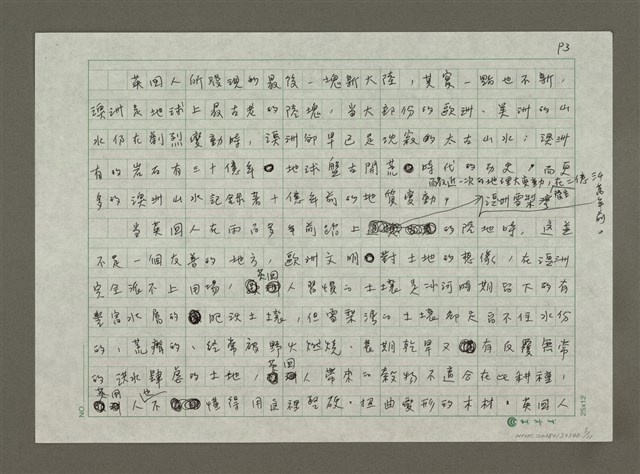 P3
英国人所發現的最後一塊新大陸，其實一點也不新，
澳洲是地球上最古老的陸塊，當大部份的歐洲、美洲的山
水仍在劇烈變動時，澳洲卻早已是沈寂的太古山水；澳洲
有的岩石有三十億年 地球盤古開荒 時代的历史，而更
而最近一次的地理大变動，在二億
多的澳洲山水記錄著十億年前的地質变動， 澳洲雪梨灣
當英国人在兩百多年前踏上 的陸地時，這並
不是一個友善的地方，歐洲文明 對土地的想像，在澳洲
英国
完全派不上用場， 人習慣的土壤是冰河時期留下的有
豐富水層的 肥沃土壤，但雪梨灣的土壤卻是留不住水份
的、荒瘠的、經常被野火燃燒、長期乾旱又 有反覆無常
英国
的洪水肆虐的土地， 人帶來的穀物不適合在此耕種，
英国 也
人不 懂得用這裡堅硬、扭曲变形的木材，英国人
NO.
25×12